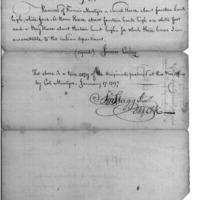 Received of Francis Montjoy a sorrel Horse about fourteen hands
high, white face, A Roan Horse about fourteen hands high, a white foot
and a Bay Horse about thirteen hands high, for which three horses I am
accountable to the indian department.
(signed) James
The above is a true copy of the Original produced at this War Office
by Col Montjoy, January 17 1797
Jno Stagg Junr